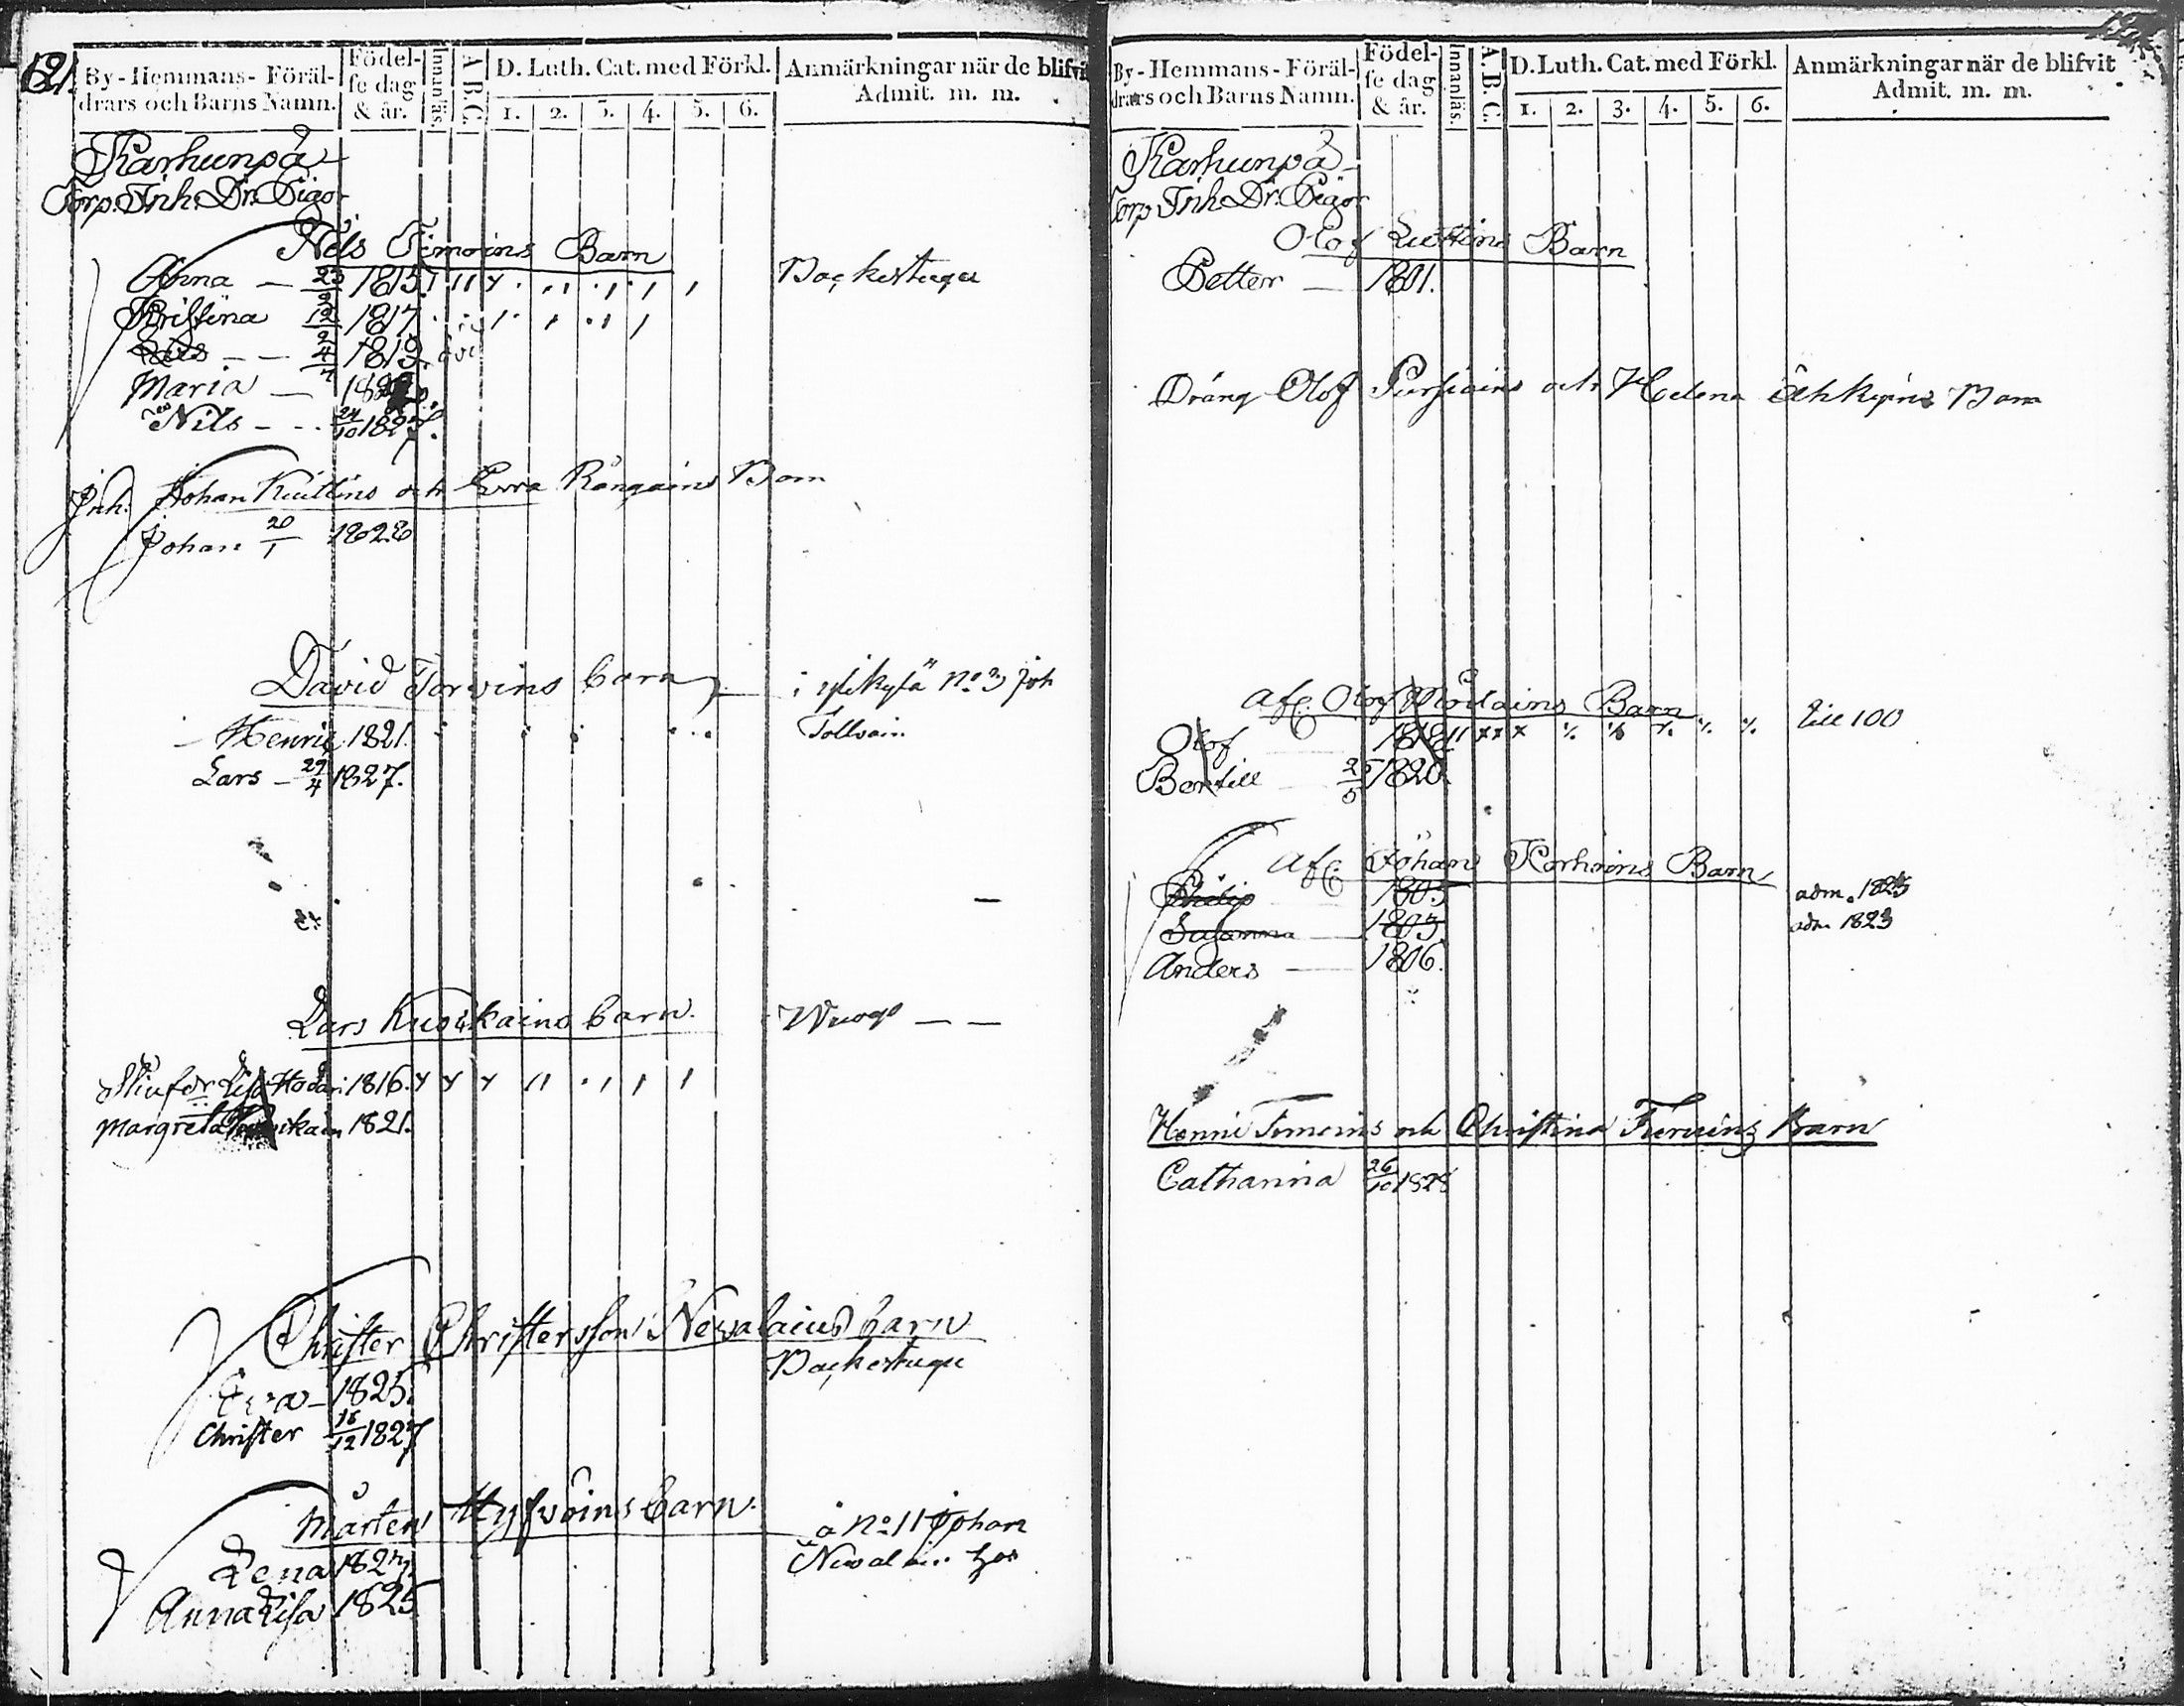 121.
By-Hemmans-Föräl-
drars och Barns Namn.
Födel-
se dag
& år.
Innanläs.
A B C
D. Luth. Cat. med Förkl.
1. 2. 3. 4. 5. 6.
Anmärkningar när de blifvit
Admit. m. m.
Karhunpä
Torp. Inh. Dr. Pigor
Nils Timoins Barn
Anna — 23/2 1815. Backestugu
Kristina 12/9 1817
4/7 1819
Maria —
Nils - - 24/10 1827.
Inh. Johan Kuitins och Evva Rångains Barn
Johan 20/1 1828
David Torvins barn i ylikylä No 3 Joh
Henric 1821. Tolvain
Lars — 29/4 1827.
Lars Kuosikains barn. — —
Stiufdr Lisa 1816.
Margreta 1821.
Christer Christersson Newalains barn
Backestugu
Evva — 1825.
Christer 18/12 1827
Mårten Hyfvöins barn. å No 11 Johan
Lena 1823. Newalain hos
Anna Lisa 1825
By-Hemmans-Föräl-
drars och Barns Namn.
Födel-
se dag
& år.
Innanläs.
A. B. C.
D. Luth. Cat. med Förkl.
1. 2. 3. 4. 5. 6.
Anmärkningar när de blifvit
Admit. m. m.
Karhunpä
Torp Inh. Dr. Pigor
Olof Barn
Petter — 1801.
Dräng Olof Pursiains och Helena Barn
Afl. Olof Barn till 100
Olof 1818
Bertill 1820.
Afl. Johan Korhoins Barn
Philip 1803 adm. 1825
Susanna — 1803 adm 1823
Anders — 1806.
Henric Timoins och Christina Barn
Catharina 26/10 1828